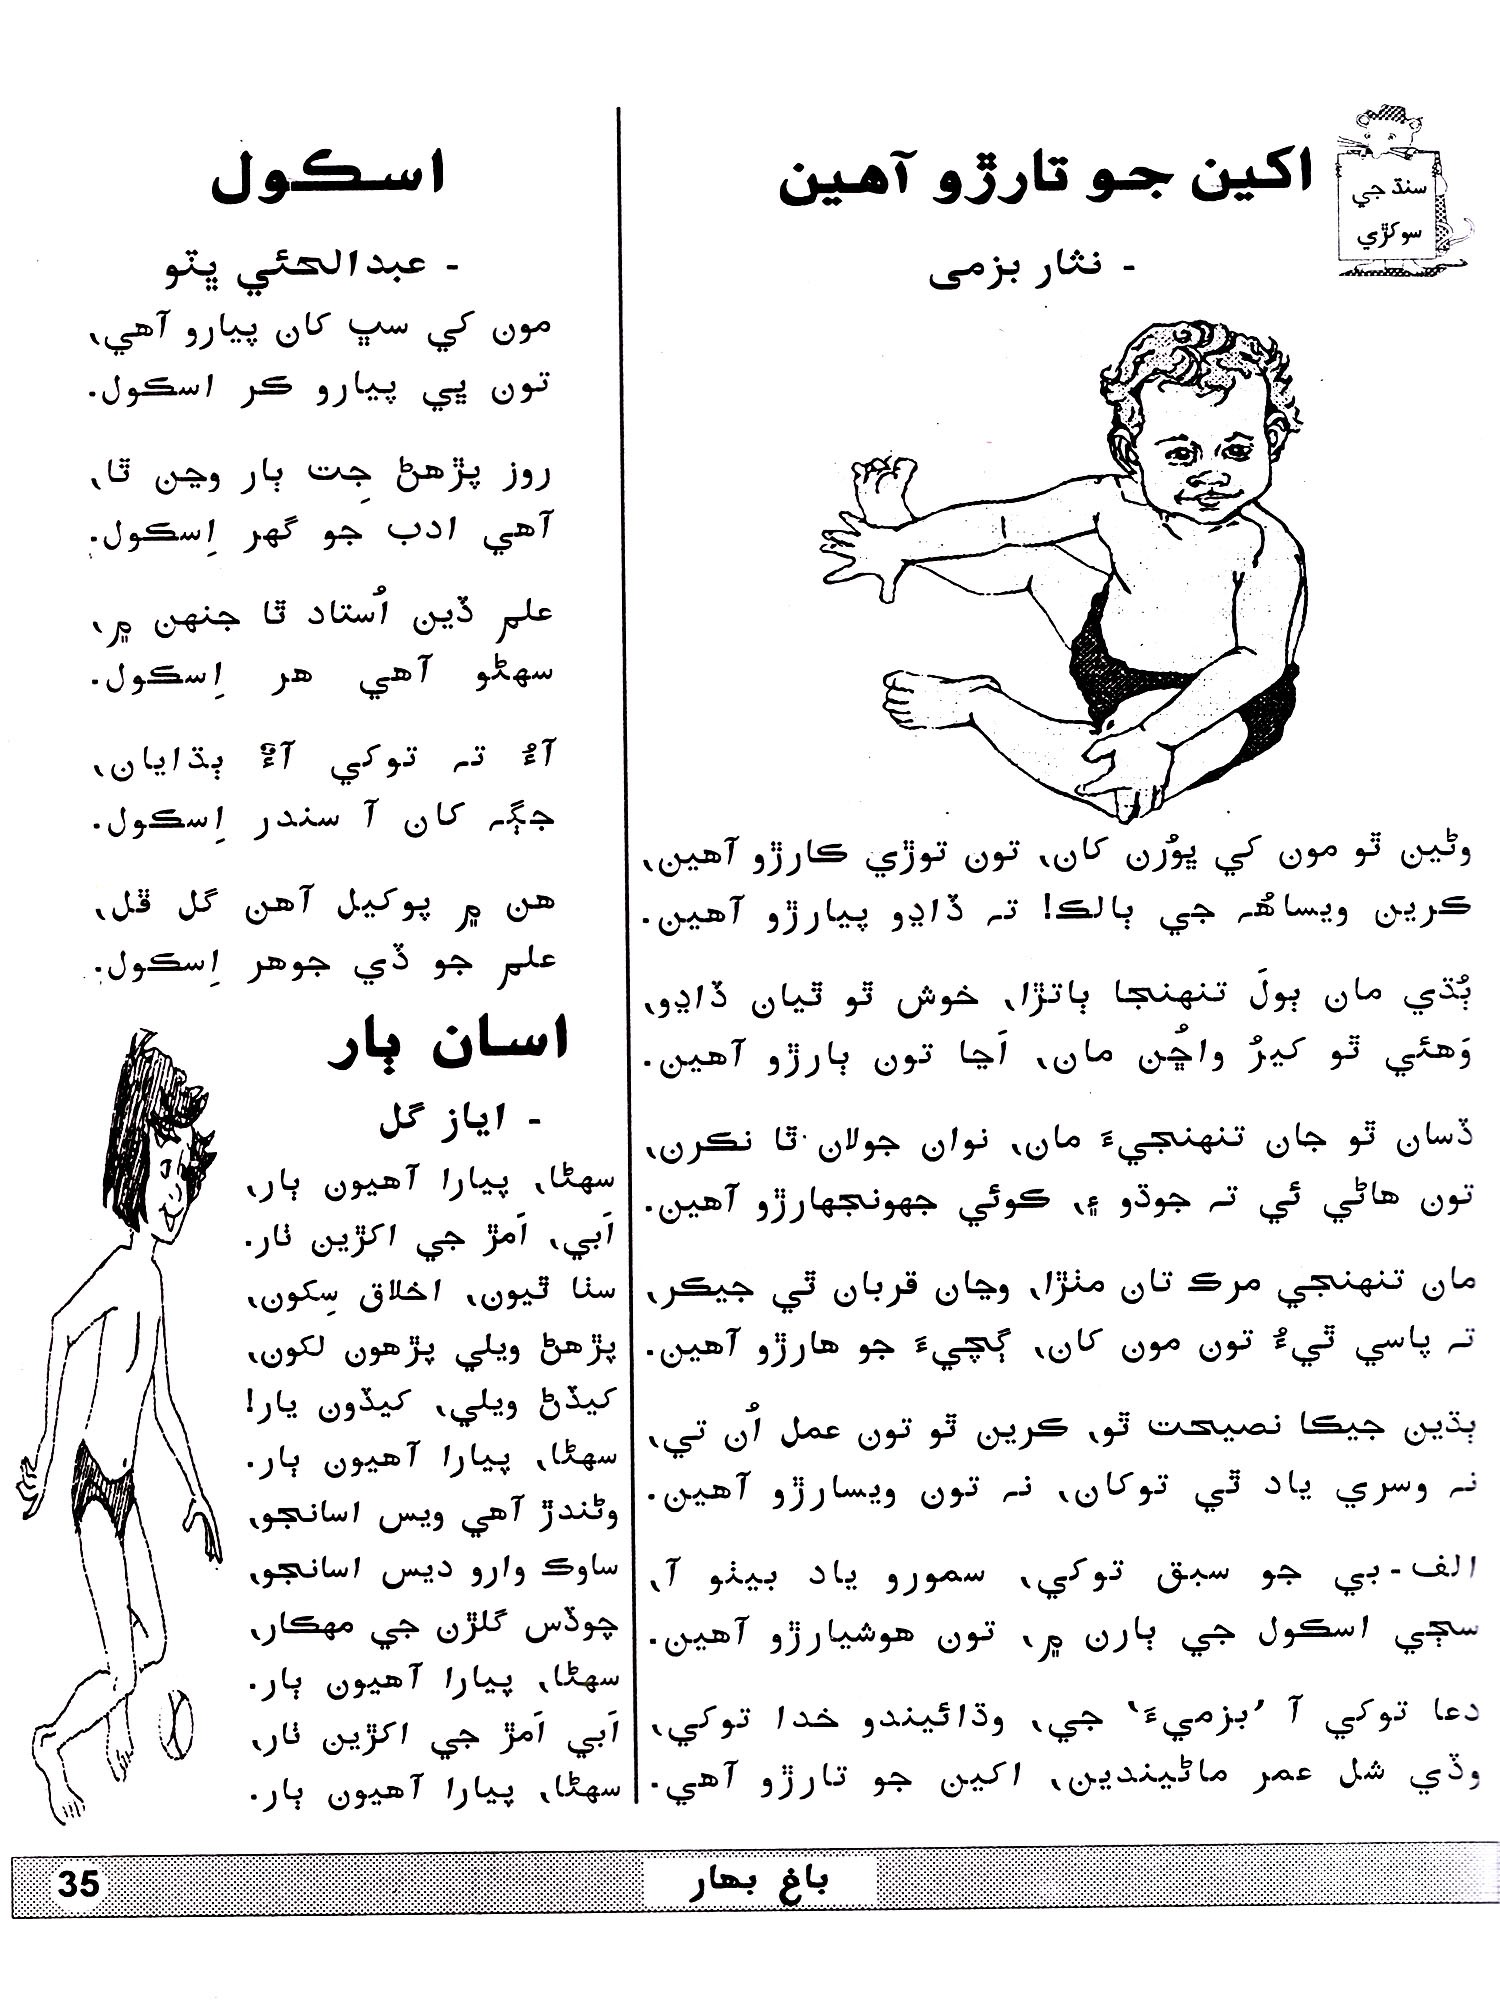 سنڌ جي
سوکڙي
اکين جو تارڙو آهين
- نثار بزمی
وڻين ٿو مون کي ڀوُرن کان، تون توڙي ڪارڙو آهين،
ڪرين ويساھُہ جي ٻالڪ! تہ ڏاڍو پيارڙو آهين.
ٻُڌي مان ٻولَ تنهنجا ٻاتڙا، خوش ٿو ٿيان ڏاڍو،
وَهئي ٿو کيرُ واڇُن مان، اَڃا تون ٻارڙو آهين.
ڏسان ٿو جان تنهنجيءَ مان، نوان جولان ٿا نڪرن،
تون هاڻي ئي تہ جوڌو ۽، ڪوئي جهونجهارڙو آهين.
مان تنهنجي مرڪ تان مٺڙا، وڃان قربان ٿي جيڪر،
تہ پاسي ٿيءُ تون مون کان، ڳچيءَ جو هارڙو آهين.
ٻڌين جيڪا نصيحت ٿو، ڪرين ٿو تون عمل اُن تي،
نہ وسري ياد ٿي توکان، نہ تون ويسارڙو آهين.
الف - بي جو سبق توکي، سمورو ياد بيٺو آ،
سڄي اسڪول جي ٻارن ۾، تون هوشيارڙو آهين.
دعا توکي آ ’بزميءَ‘ جي، وڌائيندو خدا توکي،
وڏي شل عمر ماڻيندين، اکين جو تارڙو آهي.
اسڪول
- عبدالحئي ڀٽو
مون کي سڀ کان پيارو آهي،
تون ڀي پيارو ڪر اسڪول.
روز پڙهڻ جِت ٻار وڃن ٿا،
آهي ادب جو گهر اِسڪول.
علم ڏين اُستاد ٿا جنهن ۾،
سهڻو آهي هر اِسڪول.
آءُ تہ توکي آءٌ ٻڌايان،
جڳہ کان آ سندر اِسڪول.
هن ۾ پوکيل آهن گل ڦل،
علم جو ڏي جوهر اِسڪول.
اسان ٻار
- اياز گل
سهڻا، پيارا آهيون ٻار،
اَبي، اَمڙ جي اکڙين ٺار.
سٺا ٿيون، اخلاق سِکون،
پڙهڻ ويلي پڙهون لکون،
کيڏڻ ويلي، کيڏون يار!
سهڻا، پيارا آهيون ٻار.
وڻندڙ آهي ويس اسانجو،
ساوڪ وارو ديس اسانجو،
چوڏس گلڙن جي مهڪار،
سهڻا، پيارا آهيون ٻار.
اَبي اَمڙ جي اکڙين ٺار،
سهڻا، پيارا آهيون ٻار.
باغ بهار
35